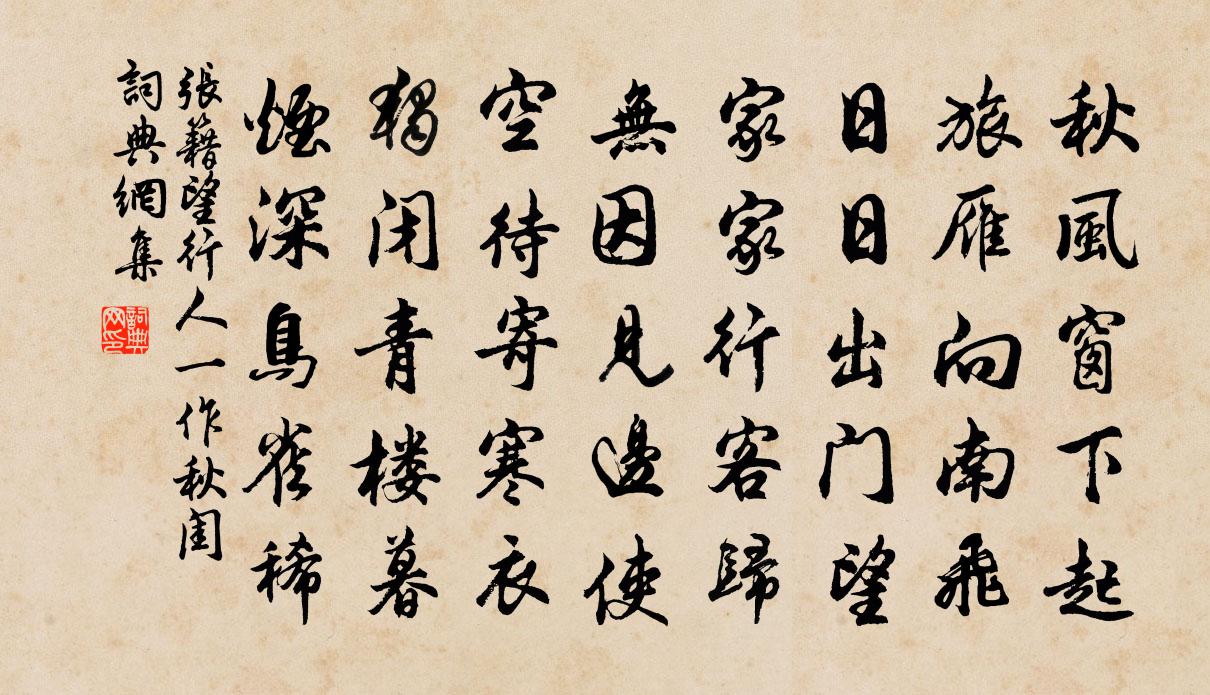 秋風窗下起
旅雁向南飛
日日出门望
家家行客歸
無因見邊使
空待寄寒衣
獨闭青楼暮
煙深鳥雀稀
張籍望行人一作秋閨
詞典網集
詞典网印